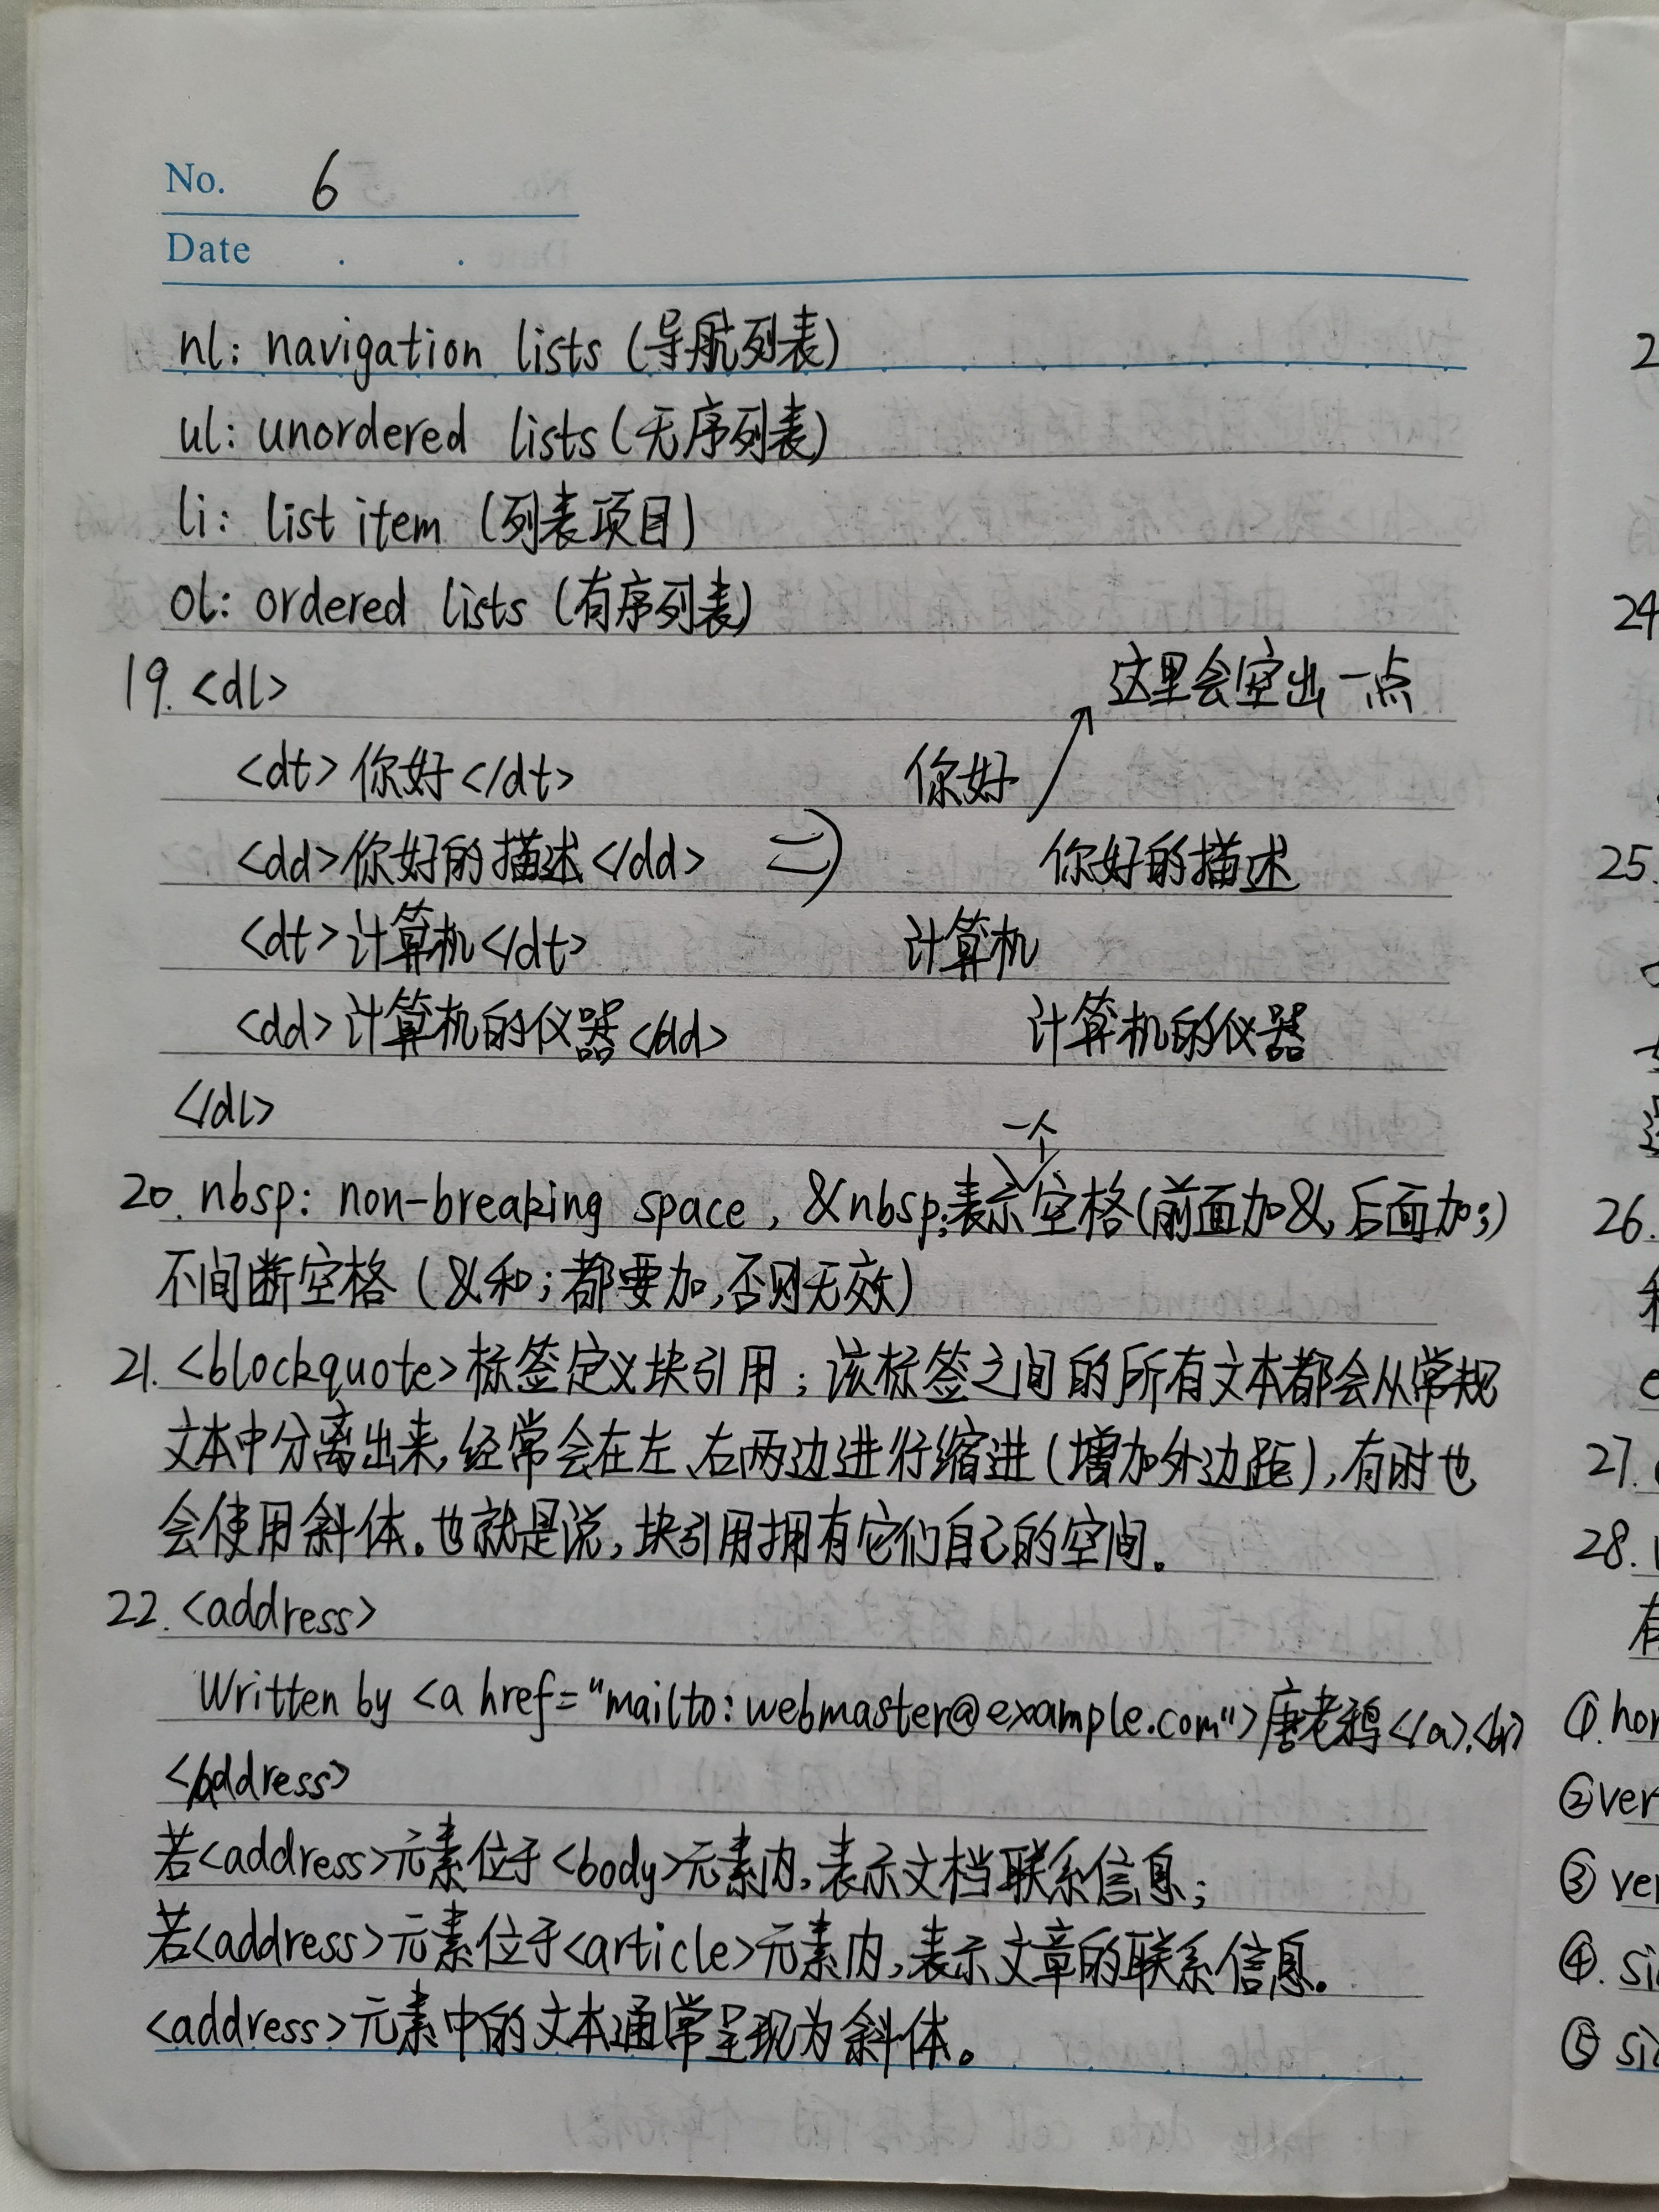 No. 6
Date . .
nl: navigation lists (导航列表)
ul: unordered lists (无序列表)
li: list item (列表项目)
ol: ordered lists (有序列表)
19. <dl>
这里会空出一点
<dt>你好</dt>
你好
<dd>你好的描述</dd> => 你好的描述
<dt>计算机</dt>
计算机
<dd>计算机的仪器</dd>
计算机的仪器
</dl>
20. nbsp: non-breaking space, &nbsp;表示一个空格(前面加&,后面加;)
不间断空格 (&和;都要加,否则无效)
21. <blockquote>标签定义块引用;该标签之间的所有文本都会从常规
文本中分离出来,经常会在左、右两边进行缩进(增加外边距),有时也
会使用斜体。也就是说,块引用拥有它们自己的空间。
22. <address>
Written by <a href="mailto:webmaster@example.com">唐老鸦</a>.<br>
</address>
若<address>元素位于<body>元素内,表示文档联系信息;
若<address>元素位于<article>元素内,表示文章的联系信息。
<address>元素中的文本通常呈现为斜体。
2
24
25.
26.
27.
28.
①.hor
②ver
③ ver
④. si
⑤ si